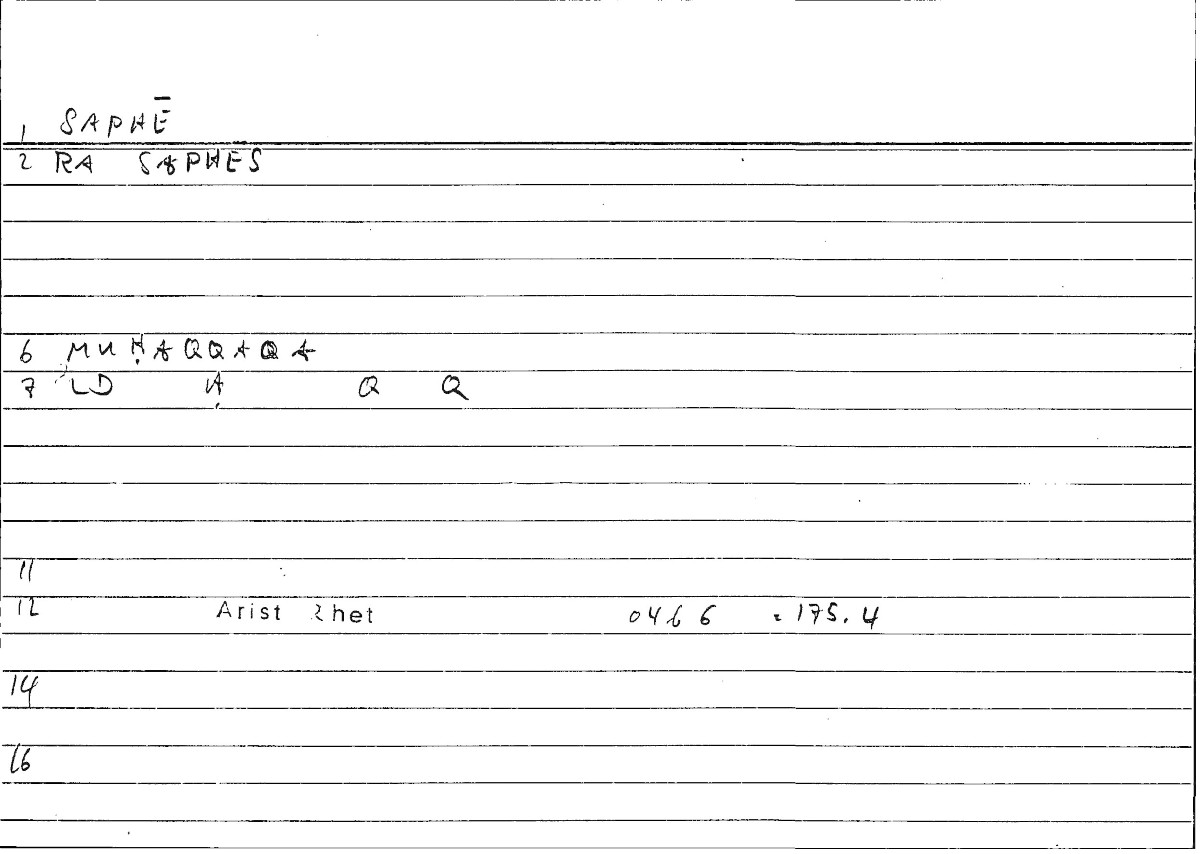 1 SAPHĒ
2 RA SAPHES
6 MUḤAQQAQA
7 LD Ḥ Q Q
11
12 Arist Rhet 0466 = 175.4
14
16